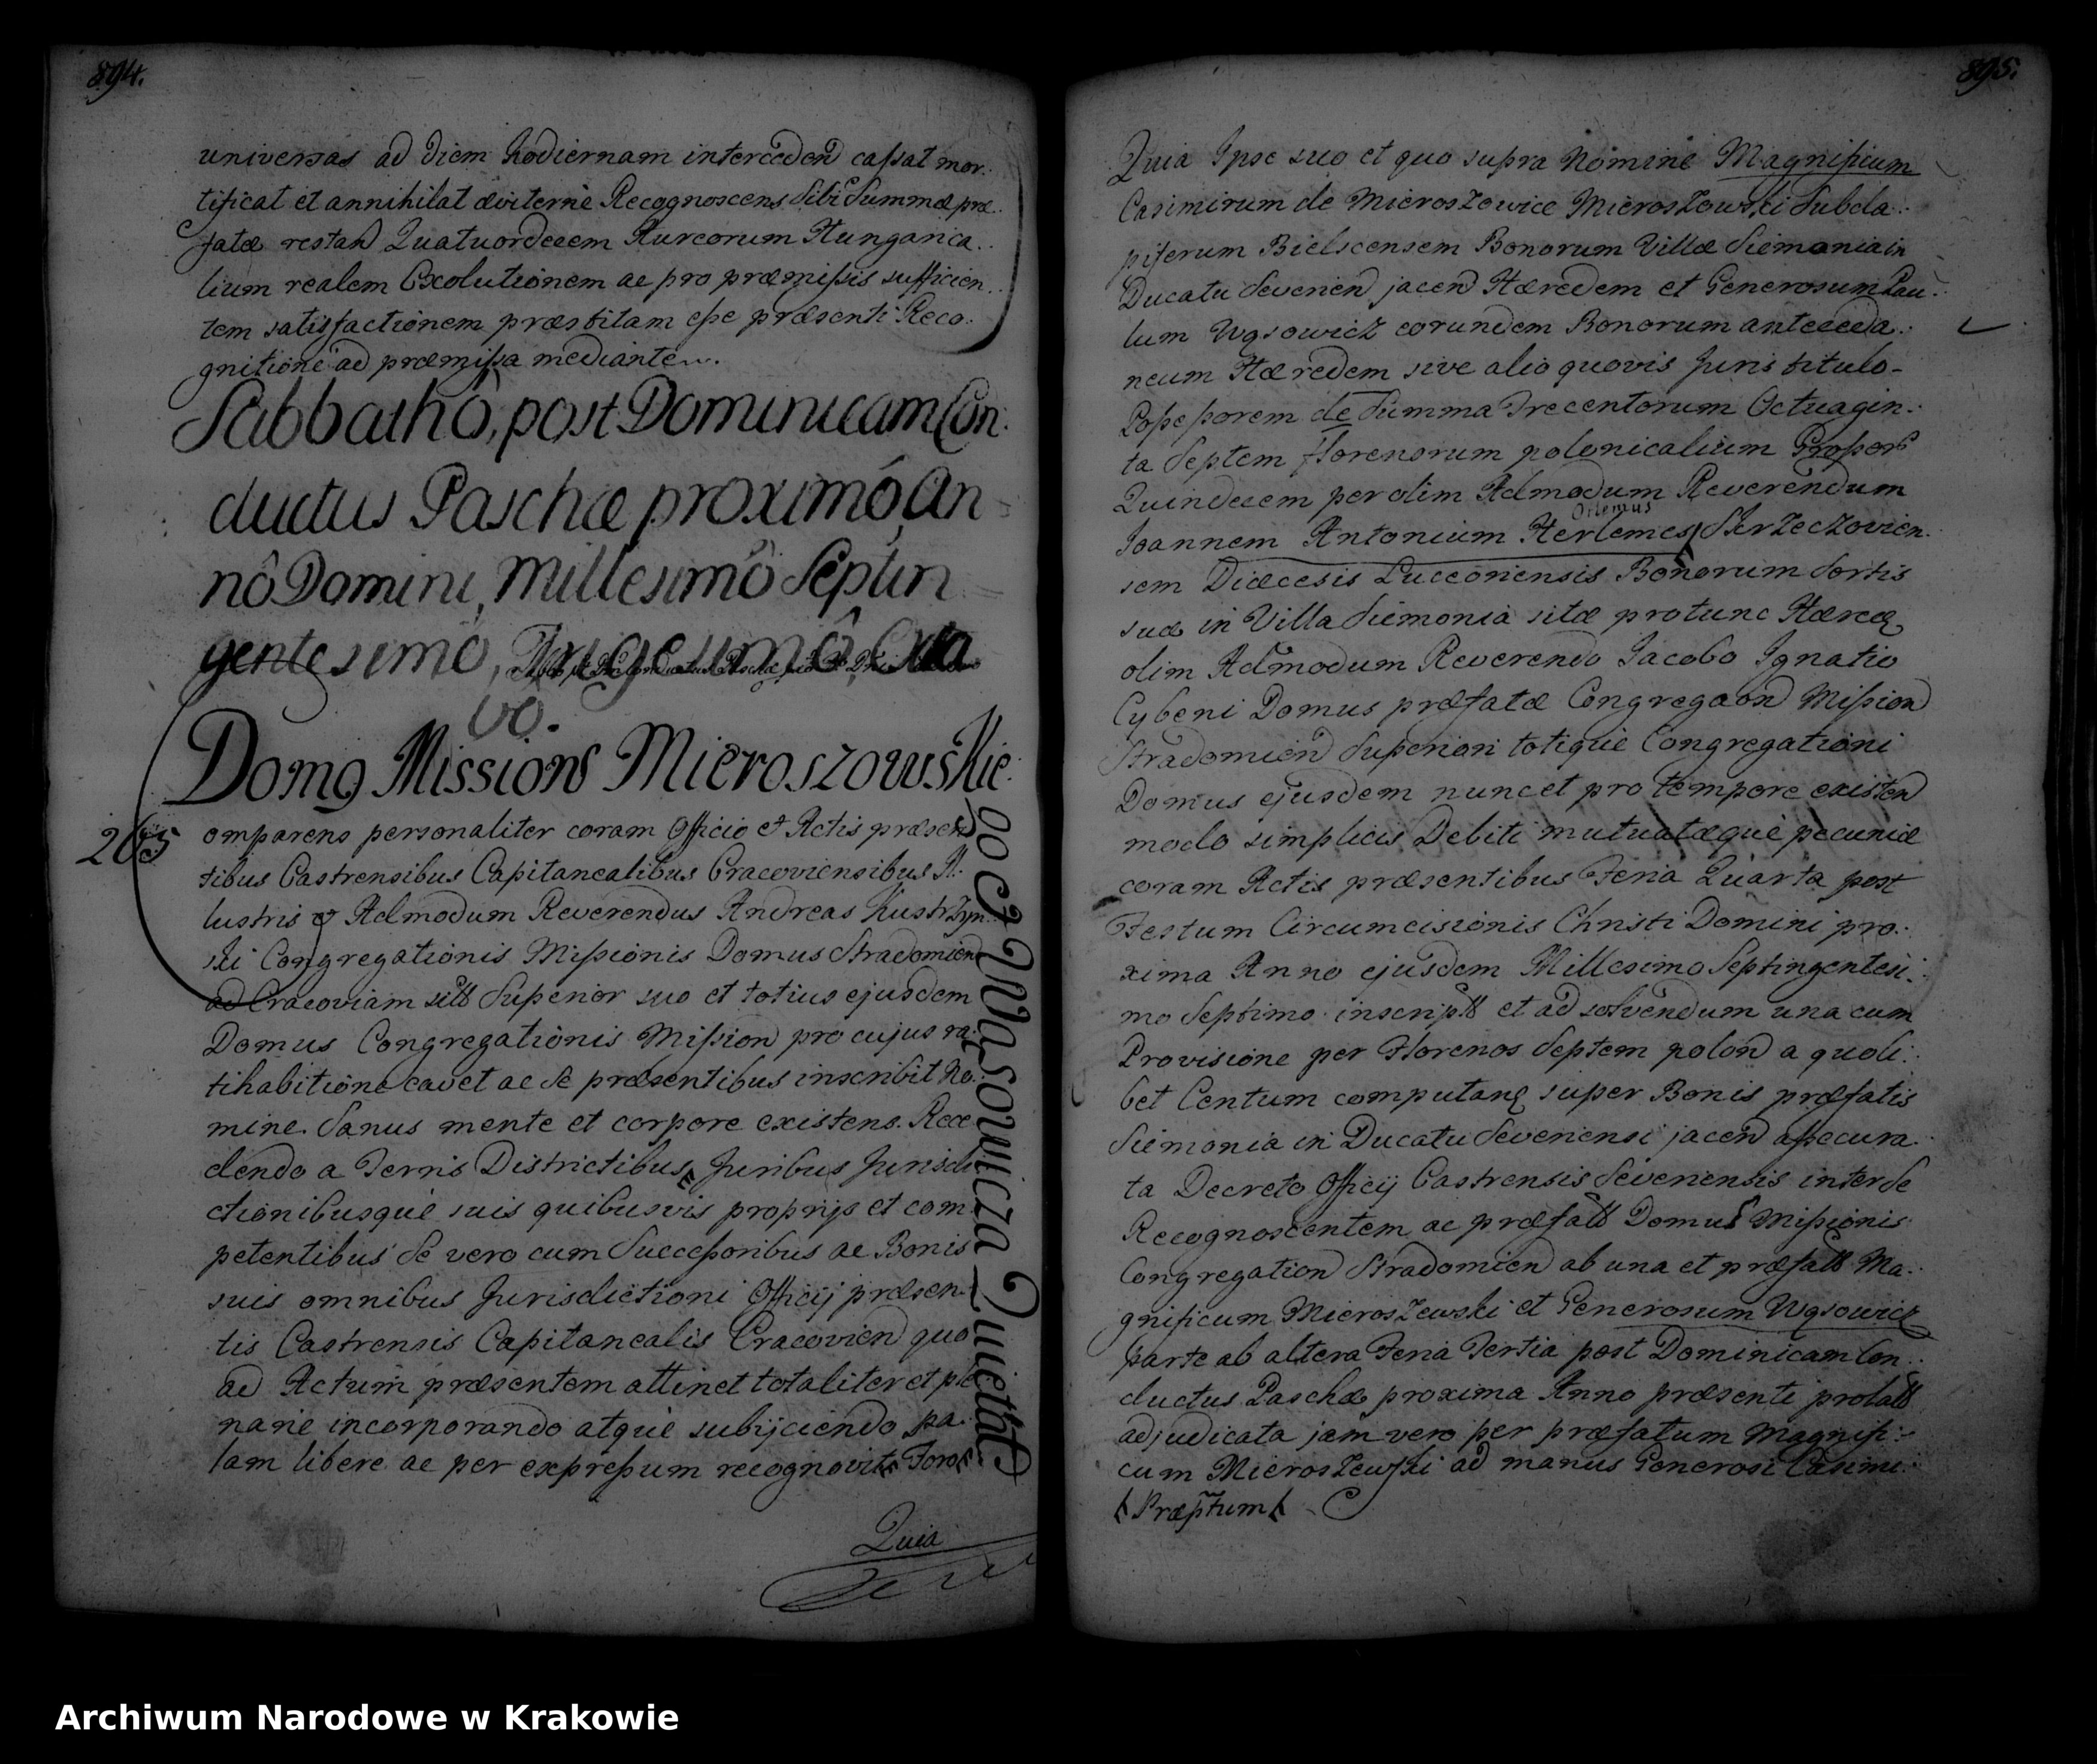 894.
universas ad diem hodiernam interceden cassat mor.
tificat et annihilat æviterne Recognoscens sibi Summæ præ.
fatæ restan Quatuordecem Aureorum Hungarica.
lium realem Exolutionem ac pro præmissis sufficien.
tem satisfactionem præstitam esse præsenti Reco.
gnitione ad præmissa mediante
Sabbathô, post Dominicam Con.
ductus Paschæ proximô, An
nô Domini, Millesimô Septin
gentesimô, Trigesimô,
vo.
Domg Missions Mieroszowskie.
go et Wąsowicza Quietat
265
omparens personaliter coram Officio et Actis præsen
tibus Castrensibus Capitanealibus Cracoviensibus Il.
lustris et Admodum Reverendus Andreas
ski Congregationis Missionis Domus Stradomien
ad Cracoviam sitt Superior suo et totius ejusdem
Domus Congregationis Mission pro cujus ra.
tihabitione cavet ac se præsentibus inscribit No.
mine. Sanus mente et corpore existens. Rece
dendo a Terris Districtibus, Juribus Jurisdi
ctionibusque suis quibusvis proprijs et com
petentibus se vero cum Successoribus ac Bonis
suis omnibus Jurisdictioni Officij præsen.
tis Castrensis Capitanealis Cracovien quo
ad Actum præsentem attinet totaliter et ple
narie incorporando atque subijciendo pa.
lam libere ac per expressum recognovit Foro
Quia
895.
Quia Ipse suo et quo supra Nomine Magnificum
Casimirum de Mieroszowice Mieroszowski Subda.
piferum Bielscensem Bonorum Villæ Siemonia in
Ducatu Severien jacen Hæredem et Generosum Pau.
lum Wąsowicz eorundem Bonorum anteceda.
neum Hæredem sive alio quovis Juris titulo
Possessorem de Summa Trecentorum Octuagin.
ta Septem florenorum polonicalium Grossor
Quindecem per olim Admodum Reverendum
Joannem Antonium Herlemes Skrzeczovien.
sem Diæcesis Lucconensis Bonorum Sortis
suæ in Villa Siemonia sitæ protunc Hæred
olim Admodum Reverendo Jacobo Ignatio
Cybeni Domus præfatæ Congregaon Mission
Stradomien Superiori totique Congregationi
Domus ejusdem nunc et pro tempore existen
modo simplicis Debiti mutuatæque pecuniæ
coram Actis præsentibus Feria Quarta post
Festum Circumcisionis Christi Domini pro.
xima Anno ejusdem Millesimo Septingentesi.
mo Septimo inscript et ad solvendum una cum
Provisione per Florenos Septem polon a quoli.
bet Centum computang super Bonis præfatis
Siemonia in Ducatu Severiensi jacen assecura.
ta Decreto Officij Castrensis Severiensis inter se
Recognoscentem ac præfatt Domus Missionis
Congregation Stradomien ab una et præfatt Ma.
gnificum Mieroszewski et Generosum Wąsowicz
parte ab altera Feria Tertia post Dominicam Con.
ductus Paschæ proxima Anno præsenti prolatt
adjudicata jam vero per præfatum Magnifi.
cum Mieroszewski ad manus Generosi Casimi.
Præptum
Archiwum Narodowe w Krakowie